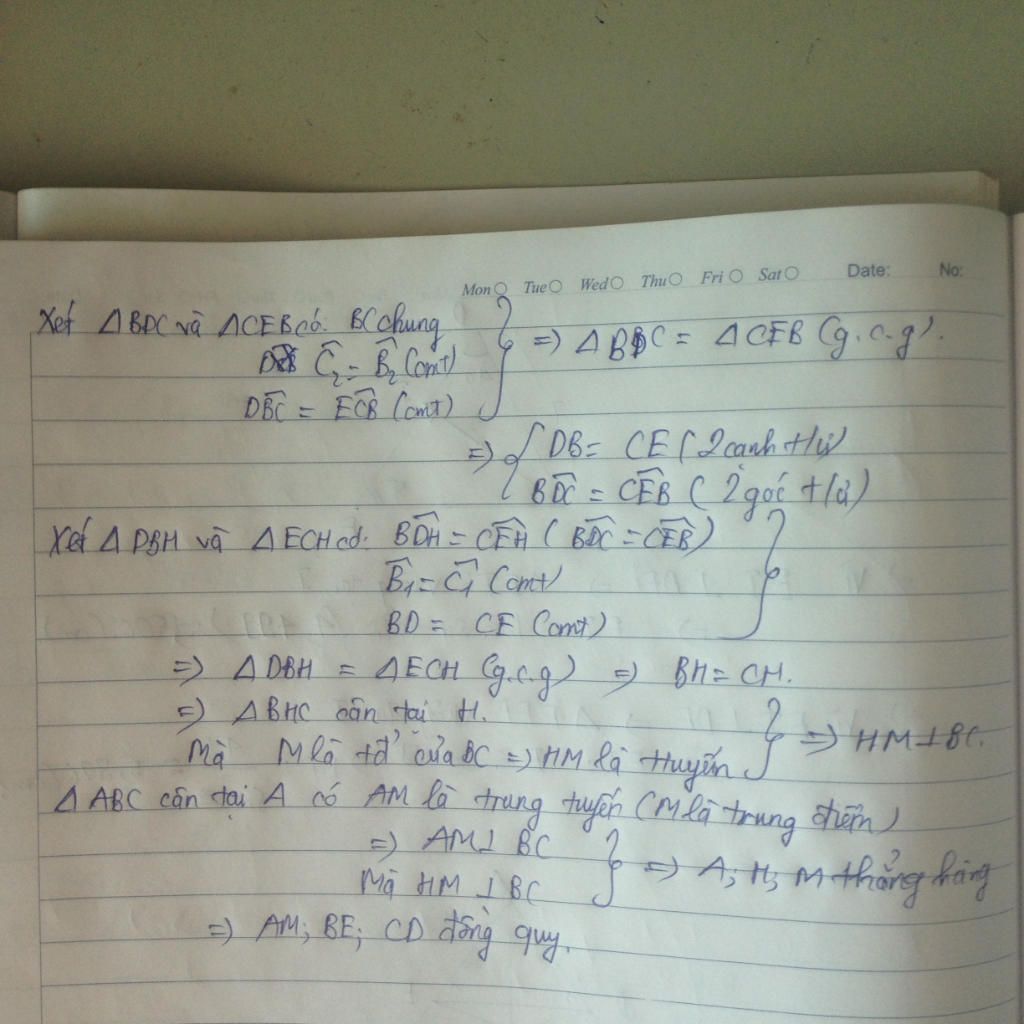 Mon Tue Wed Thu Fri Sat Date: No:
Xét ΔBDC và ΔCEB có: BC chung
Ĉ₂ = B̂₂ (cmt) => ΔBDC = ΔCEB (g.c.g).
DB̂C = EĈB (cmt)
=> { DB = CE (2 cạnh t/ứ)
BD̂C = CÊB (2 góc t/ứ)
Xét ΔDBH và ΔECH có: BD̂H = CÊH (BD̂C = CÊB)
B̂₁ = Ĉ₁ (cmt)
BD = CE (cmt)
=> ΔDBH = ΔECH (g.c.g) => BH = CH.
=> ΔBHC cân tại H.
Mà M là tđ' của BC => HM là tuyến => HM ⊥ BC.
ΔABC cân tại A có AM là trung tuyến (M là trung điểm)
=> AM ⊥ BC
Mà HM ⊥ BC => A; H; M thẳng hàng
=> AM; BE; CD đồng quy.